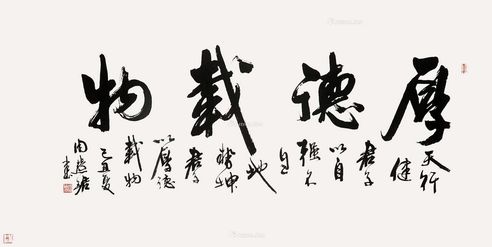 厚德載物
天行
健
君子
以自
強不
息
地
勢坤
君子
以厚德
載物
己丑夏